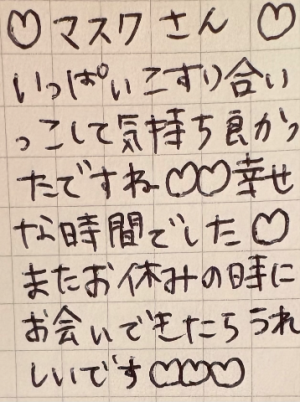 ♡マスクさん♡
いっぱいこすり合い
っこして気持ち良かっ
たですね♡♡幸せ
な時間でした♡
またお休みの時に
お会いできたらうれ
しいです♡♡♡